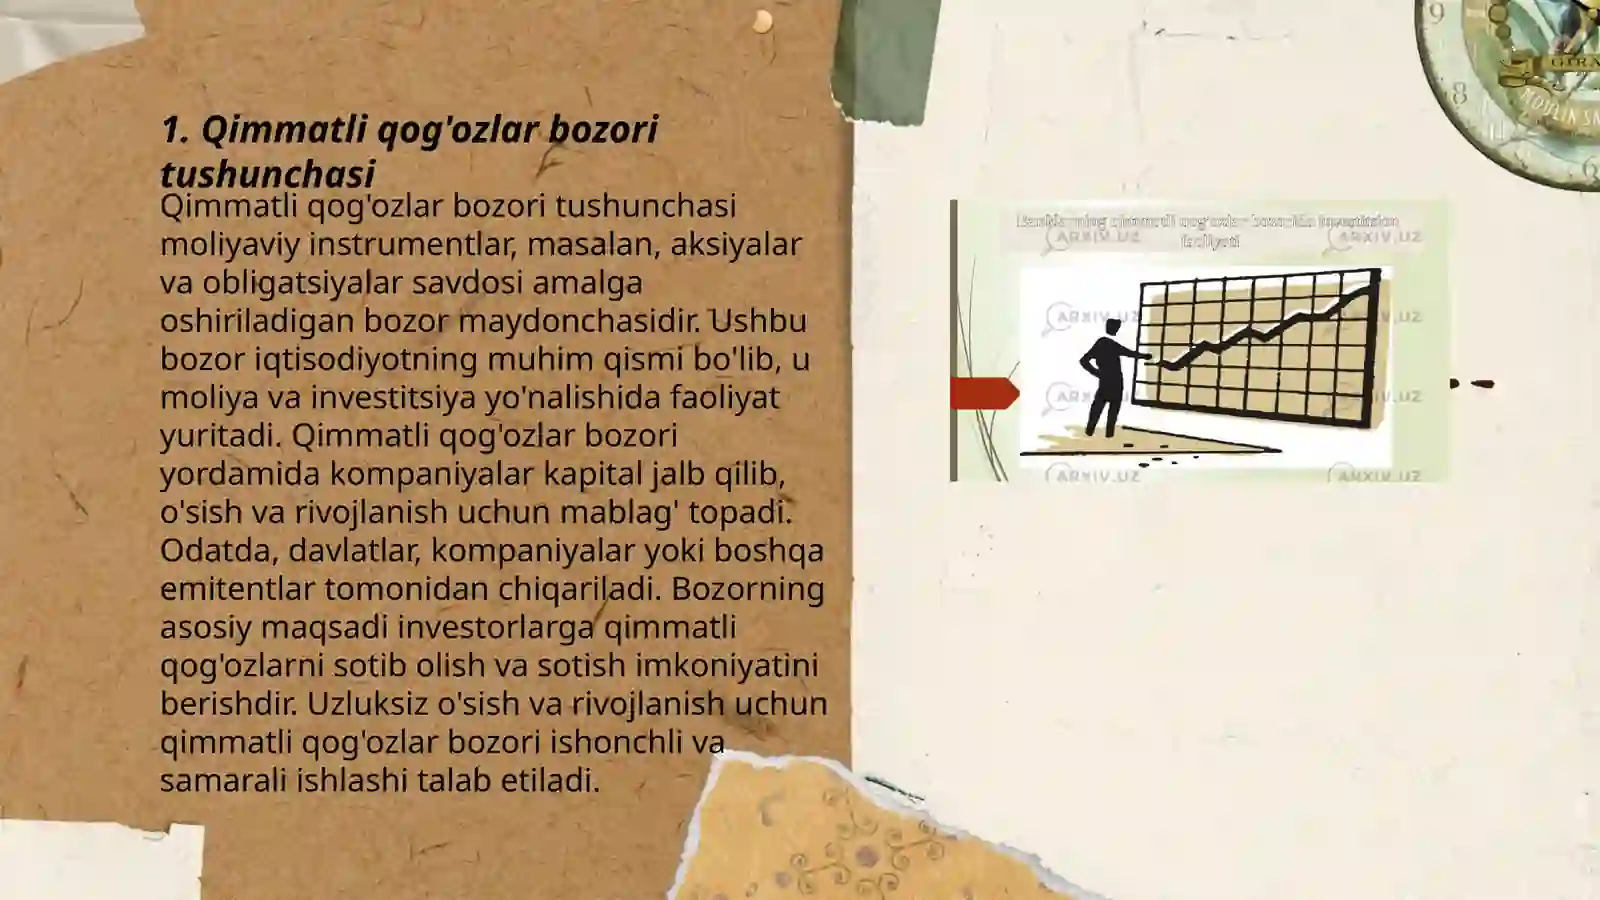 1. Qimmatli qog'ozlar bozori
tushunchasi
Qimmatli qog'ozlar bozori tushunchasi
moliyaviy instrumentlar, masalan, aksiyalar
va obligatsiyalar savdosi amalga
oshiriladigan bozor maydonchasidir. Ushbu
bozor iqtisodiyotning muhim qismi bo'lib, u
moliya va investitsiya yo'nalishida faoliyat
yuritadi. Qimmatli qog'ozlar bozori
yordamida kompaniyalar kapital jalb qilib,
o'sish va rivojlanish uchun mablag' topadi.
Odatda, davlatlar, kompaniyalar yoki boshqa
emitentlar tomonidan chiqariladi. Bozorning
asosiy maqsadi investorlarga qimmatli
qog'ozlarni sotib olish va sotish imkoniyatini
berishdir. Uzluksiz o'sish va rivojlanish uchun
qimmatli qog'ozlar bozori ishonchli va
samarali ishlashi talab etiladi.
9
8
6
MOULIN
Banklarning qimmatli qog'ozlar bozorida investitsion
faoliyati
ARXIV.UZ
ARXIV.UZ
ARXIV.UZ
ARXIV.UZ
ARXIV.UZ
ARXIV.UZ